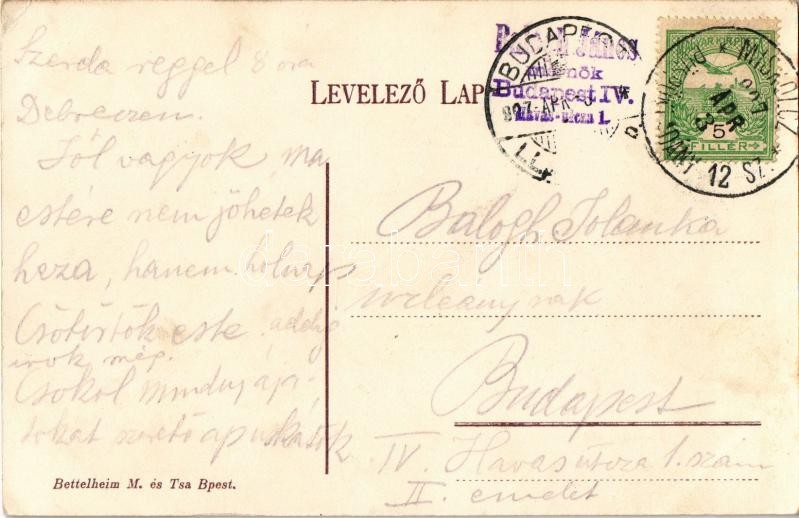 Szerda reggel 8 óra
Debreczen.
Jól vagyok, ma
estére nem jöhetek
haza, hanem holnap
Csötörtök este addig
irok még.
Csókol mindnyája-
tokat szerető apuskátok
LEVELEZŐ LAP
János
mérnök
Budapest IV.
Havas-utcza 1.
BUDAPEST
907 APR
MAGYAR KIR. POSTA
5
FILLÉR
MISKOLCZ
907
APR
3
12 SZ.
Balogh Jolánka
urleánynak
Budapest
IV. Havas utcza 1. szám
II. emelet
Bettelheim M. és Tsa Bpest.
darabanth